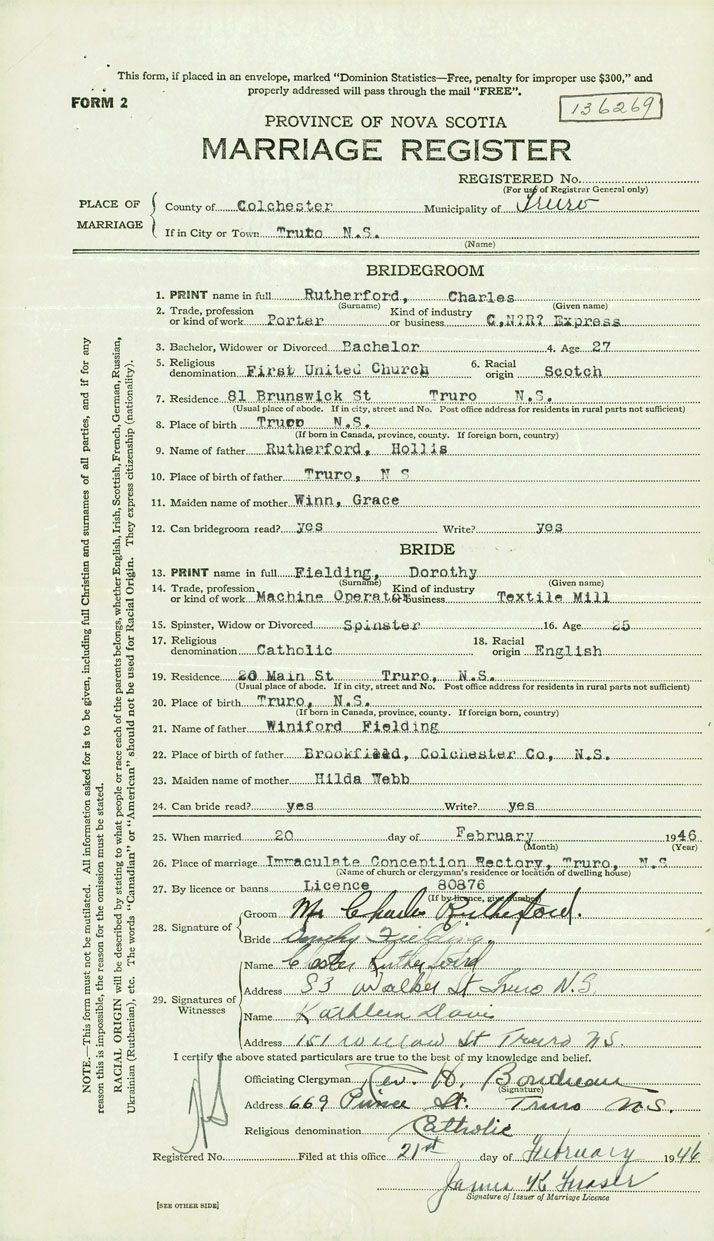 This form, if placed in an envelope, marked "Dominion Statistics—Free, penalty for improper use $300," and
properly addressed will pass through the mail "FREE".
FORM 2
136269
PROVINCE OF NOVA SCOTIA
MARRIAGE REGISTER
REGISTERED No.
(For use of Registrar General only)
PLACE OF MARRIAGE
County of Colchester Municipality of Truro
If in City or Town Truto N.S.
(Name)
BRIDEGROOM
1. PRINT name in full Rutherford, Charles
(Surname) (Given name)
2. Trade, profession or kind of work Porter Kind of industry or business C,N?R? Express
3. Bachelor, Widower or Divorced Bachelor 4. Age 27
5. Religious denomination First United Church 6. Racial origin Scotch
7. Residence 81 Brunswick St Truro N.S.
(Usual place of abode. If in city, street and No. Post office address for residents in rural parts not sufficient)
8. Place of birth N.S.
(If born in Canada, province, county. If foreign born, country)
9. Name of father Rutherford, Hollis
10. Place of birth of father Truro, N S
11. Maiden name of mother Winn, Grace
12. Can bridegroom read? yes Write? yes
BRIDE
13. PRINT name in full Fielding, Dorothy
(Surname) (Given name)
14. Trade, profession or kind of work Machine Operator Kind of industry or business Textile Mill
15. Spinster, Widow or Divorced Spinster 16. Age 25
17. Religious denomination Catholic 18. Racial origin English
19. Residence 20 Main St Truro, N.S.
(Usual place of abode. If in city, street and No. Post office address for residents in rural parts not sufficient)
20. Place of birth Truro, N.S.
(If born in Canada, province, county. If foreign born, country)
21. Name of father Winiford Fielding
22. Place of birth of father Brookfield, Colchester Co, N.S.
23. Maiden name of mother Hilda Webb
24. Can bride read? yes Write? yes
25. When married 20 day of February 1946
(Month) (Year)
26. Place of marriage Immaculate Conception Rectory, Truro, N.S
(Name of church or clergyman's residence or location of dwelling house)
27. By licence or banns Licence 80876
(If by licence, give number)
28. Signature of
Groom Mr Charles Rutherford.
Bride Fielding.
29. Signatures of Witnesses
Name Rutherford
Address 83 Walker St Truro N.S.
Name Kathleen Davis
Address 151 St Truro N.S.
I certify the above stated particulars are true to the best of my knowledge and belief.
Officiating Clergyman Rev. H. Boudreau
(Signature)
Address 669 Prince St. Truro N.S.
Religious denomination Catholic
Registered No. Filed at this office 21st day of February 1946
James K Fraser
Signature of Issuer of Marriage Licence
[SEE OTHER SIDE]
NOTE.—This form must not be mutilated. All information asked for is to be given, including full Christian and surnames of all parties, and if for any
reason this is impossible, the reason for the omission must be stated.
RACIAL ORIGIN will be described by stating to what people or race each of the parents belongs, whether English, Irish, Scottish, French, German, Russian,
Ukrainian (Ruthenian), etc. The words "Canadian" or "American" should not be used for Racial Origin. They express citizenship (nationality).